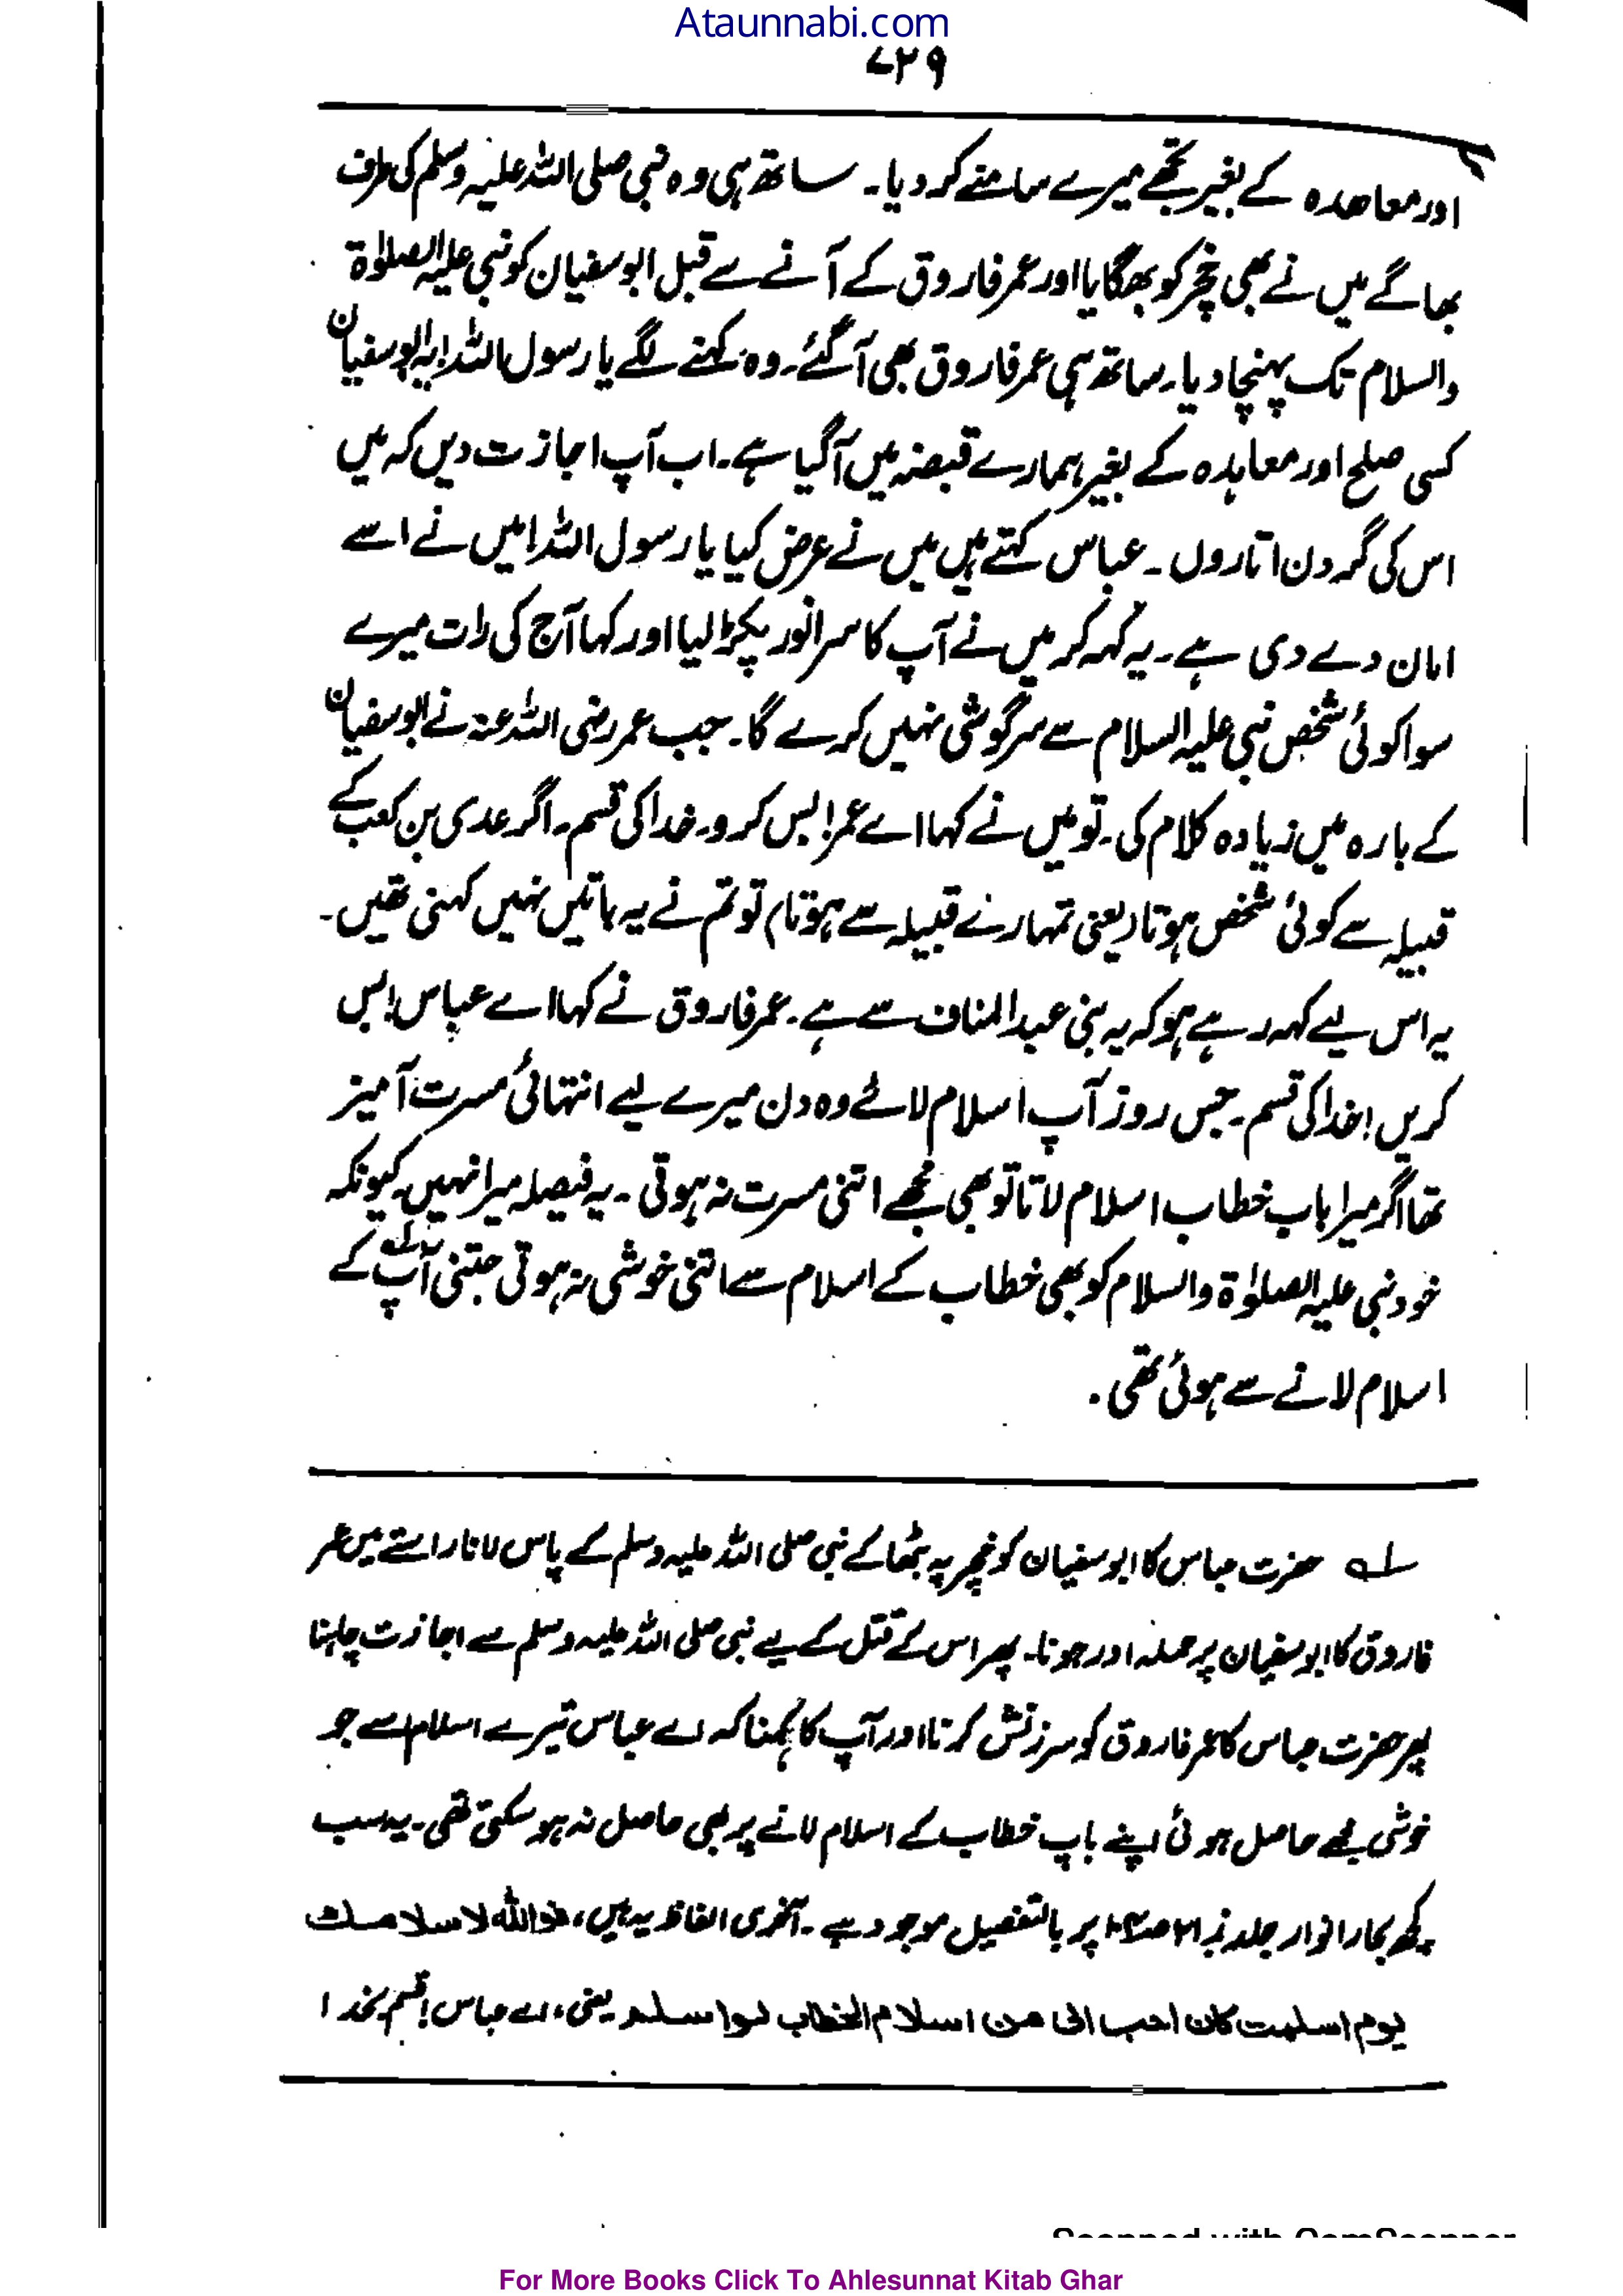 Ataunnabi.com
۷۲۹
اور معاھدہ کے بغیر تجھے میرے سامنے کر دیا۔ ساتھ ہی وہ نبی صلی اللہ علیہ وسلم کی طرف
بھاگے میں نے بھی خچر کو بھگایا اور عمر فاروق کے آنے سے قبل ابوسفیان کو نبی علیہ الصلوٰۃ
والسلام تک پہنچا دیا۔ ساتھ ہی عمر فاروق بھی آ گئے۔ وہ کہنے لگے یا رسول اللہ! یہ ابوسفیان
کسی صلح اور معاہدہ کے بغیر ہمارے قبضہ میں آ گیا ہے۔ اب آپ اجازت دیں کہ میں
اس کی گردن اتاروں۔ عباس کہتے ہیں میں نے عرض کیا یا رسول اللہ! میں نے اسے
امان دے دی ہے۔ یہ کہہ کر میں نے آپ کا سر انور پکڑ لیا اور کہا آج کی رات میرے
سوا کوئی شخص نبی علیہ السلام سے سرگوشی نہیں کرے گا۔ جب عمر رضی اللہ عنہ نے ابوسفیان
کے بارہ میں زیادہ کلام کی۔ تو میں نے کہا اے عمر! بس کرو۔ خدا کی قسم۔ اگر عدی بن کعب کے
قبیلہ سے کوئی شخص ہوتا (یعنی تمہارے قبیلہ سے ہوتا) تو تم نے یہ باتیں نہیں کہنی تھیں۔
یہ اس لیے کہہ رہے ہو کہ یہ بنی عبد المناف سے ہے۔ عمر فاروق نے کہا اے عباس! بس
کریں! خدا کی قسم۔ جس روز آپ اسلام لائے وہ دن میرے لیے انتہائی مسرت آمیز
تھا اگر میرا باپ خطاب اسلام لاتا تو بھی مجھے اتنی مسرت نہ ہوتی۔ یہ فیصلہ میرا نہیں۔ کیونکہ
خود نبی علیہ الصلوٰۃ والسلام کو بھی خطاب کے اسلام سے اتنی خوشی نہ ہوتی جتنی آپ کے
اسلام لانے سے ہوئی تھی۔
؎۱ حضرت عباس کا ابوسفیان کو خچر پہ بٹھا کے نبی صلی اللہ علیہ وسلم کے پاس لانا راستے میں عمر
فاروق کا ابوسفیان پر حملہ اور ہونا۔ پھر اس کے قتل کے لیے نبی صلی اللہ علیہ وسلم سے اجازت چاہنا
پھر حضرت عباس کا عمر فاروق کو سرزنش کرنا اور آپ کا کہنا کہ اے عباس تیرے اسلام سے جو
خوشی مجھے حاصل ہوئی اپنے باپ خطاب کے اسلام لانے پر بھی حاصل نہ ہو سکتی تھی۔ یہ سب
کچھ بحار انوار جلد نمبر ۲۱ پر بالتفصیل موجود ہے۔ آخری الفاظ یہ ہیں، فواللہ لاسلامک
یوم اسلمت کان احب الی من اسلام الخطاب لو اسلم یعنی، اے عباس! قسم بخدا
Scanned with CamScanner
For More Books Click To Ahlesunnat Kitab Ghar